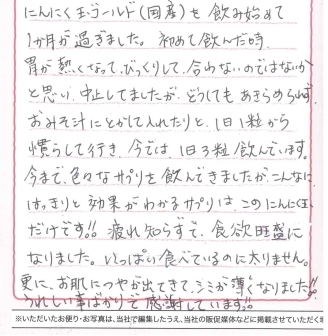 にんにく玉ゴールド(国産)を飲み始めて
1か月が過ぎました。初めて飲んだ時
胃が熱くなって、びっくりして、合わないのではないか
と思い、中止してましたが、どうしてもあきらめられず
おみそ汁にとかして入れたりと、1日1粒から
慣らして行き、今では、1日3粒飲んでいます。
今まで、色々なサプリを飲んできましたが、こんなに
はっきりと効果がわかるサプリは、このにんにく玉
だけです!! 疲れ知らずで、食欲旺盛に
なりました。いっぱい食べているのに太りません。
更に、お肌につやが出てきて、シミが薄くなりました!!
うれしい事ばかりで感謝しています!!
※いただいたお便り・お写真は、当社で編集したうえ、当社の販促媒体などに掲載させていただく